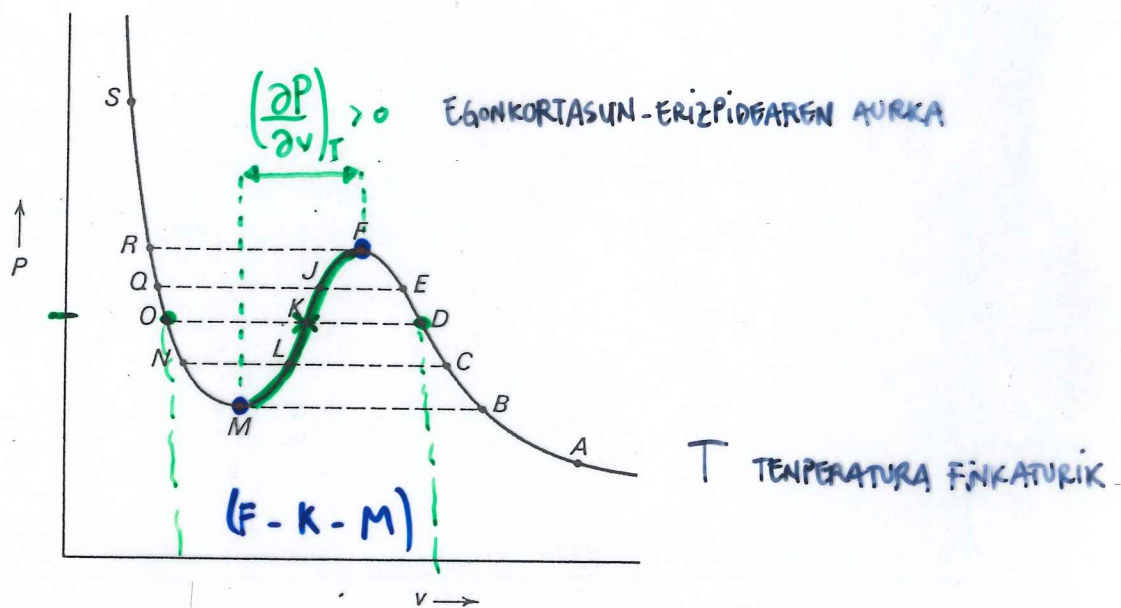 S
(∂P/∂v)_T > 0
EGONKORTASUN-ERIZPIDEAREN AURKA
P
R
F
Q
J
E
O
K
D
N
L
C
M
B
A
T TENPERATURA FINKATURIK
(F - K - M)
v